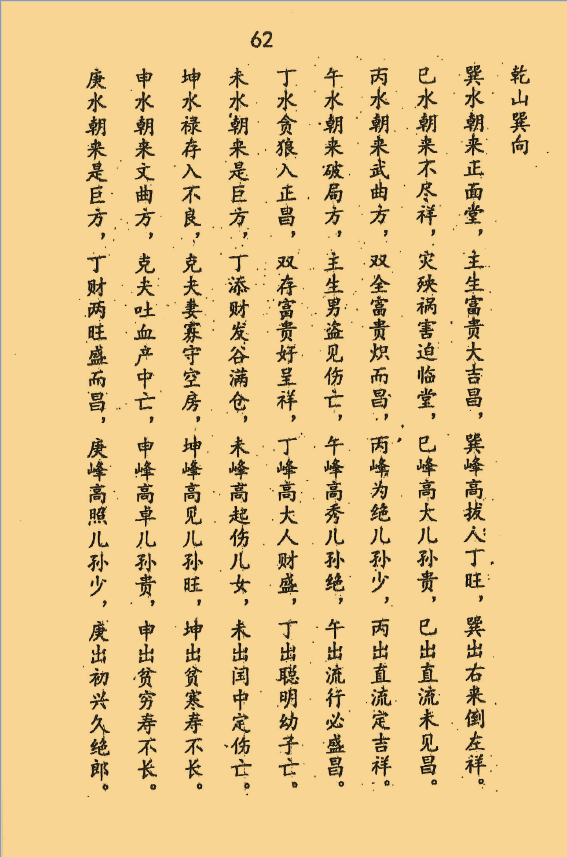 62
乾山巽向
巽水朝来正面堂，主生富贵大吉昌，巽峰高拔人丁旺，巽出右来倒左祥。
巳水朝来不尽祥，灾殃祸害迫临堂，巳峰高大儿孙贵，巳出直流未见昌。
丙水朝来武曲方，双全富贵炽而昌，丙峰为绝儿孙少，丙出直流定吉祥。
午水朝来破局方，主生男盗见伤亡，午峰高秀儿孙绝，午出流行必盛昌。
丁水贪狼入正昌，双存富贵好呈祥，丁峰高大人财盛，丁出聪明幼子亡。
未水朝来是巨方，丁添财发谷满仓，未峰高起伤儿女，未出闰中定伤亡。
坤水禄存入不良，克夫妻寡守空房，坤峰高见儿孙旺，坤出贫寒寿不长。
申水朝来文曲方，克夫吐血产中亡，申峰高卓儿孙贵，申出贫穷寿不长。
庚水朝来是巨方，丁财两旺盛而昌，庚峰高照儿孙少，庚出初兴久绝郎。